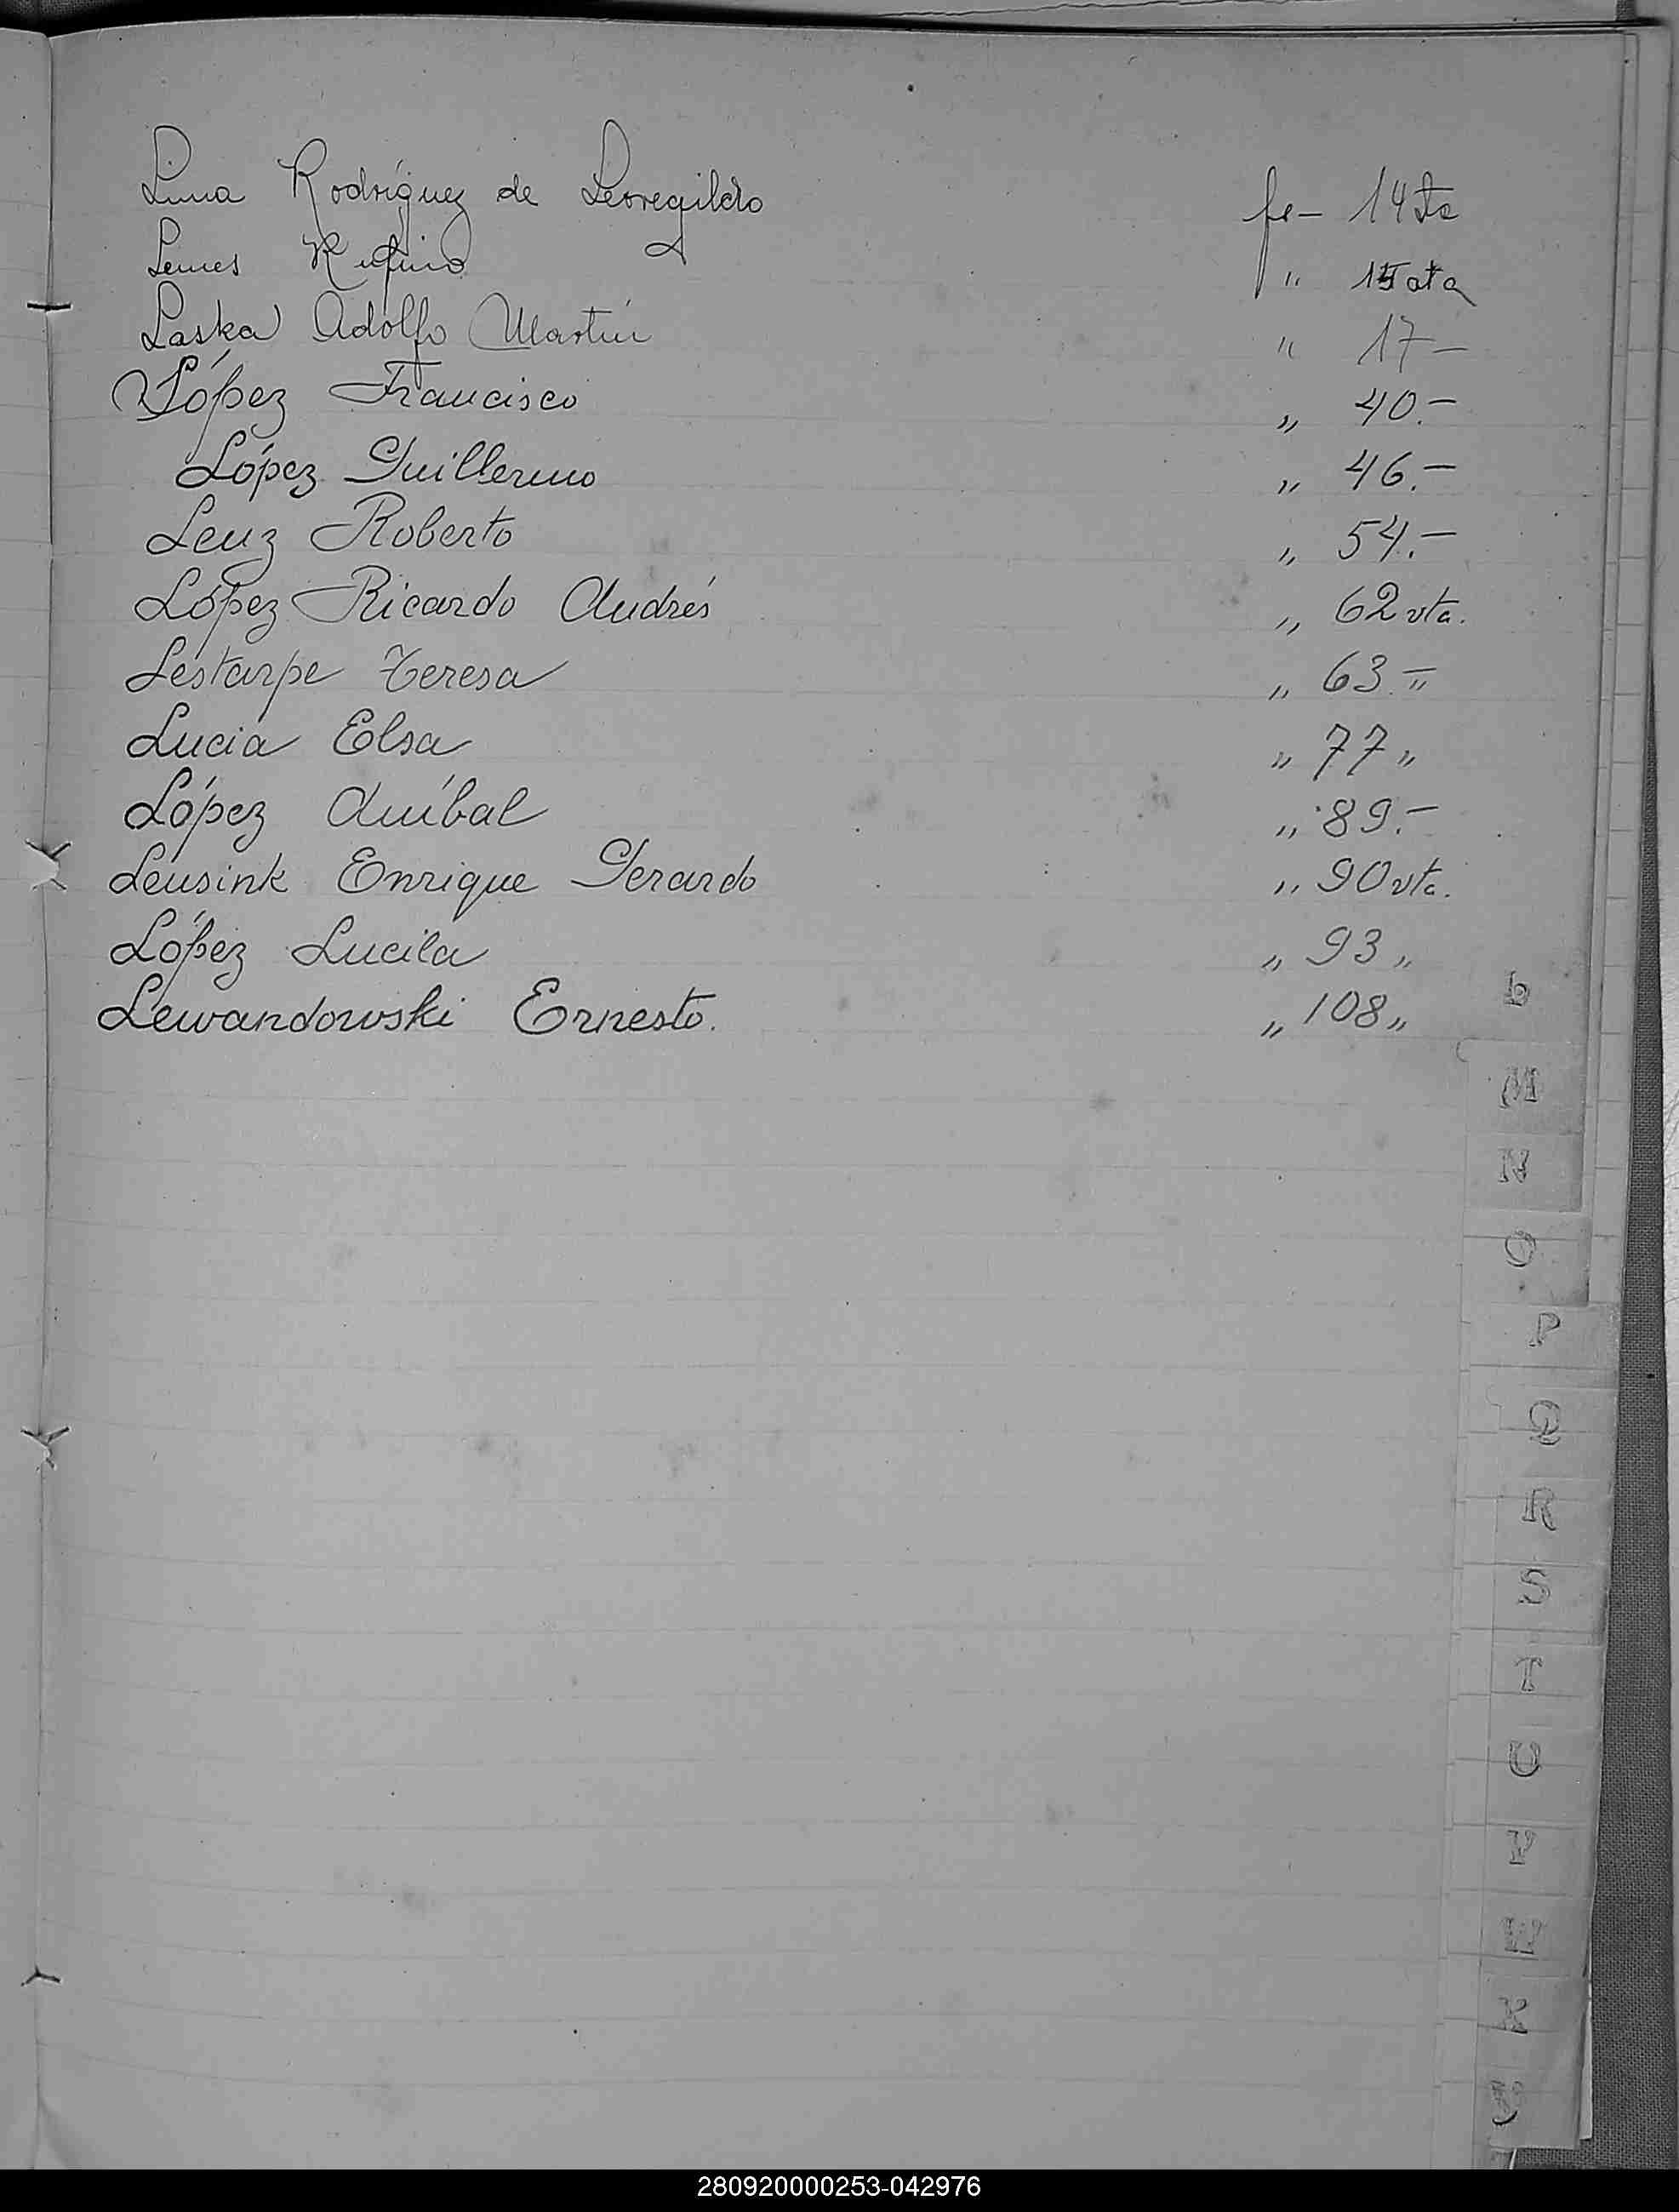 Lima Rodríguez de Leovegildo fs- 14 vta
Lemes Rufino " 15 vta
Laska Adolfo Martín " 17-
López Francisco " 40.-
López Guillermo " 46.-
Lenz Roberto " 54.-
López Ricardo Andrés " 62 vta.
Lestarpe Teresa " 63.-"
Lucia Elsa " 77 "
López Aníbal " 89.-
Leusink Enrique Gerardo " 90 vta.
López Lucila " 93 "
Lewandowski Ernesto. " 108 "
L
M
N
O
P
Q
R
S
T
U
V
W
X
280920000253-042976